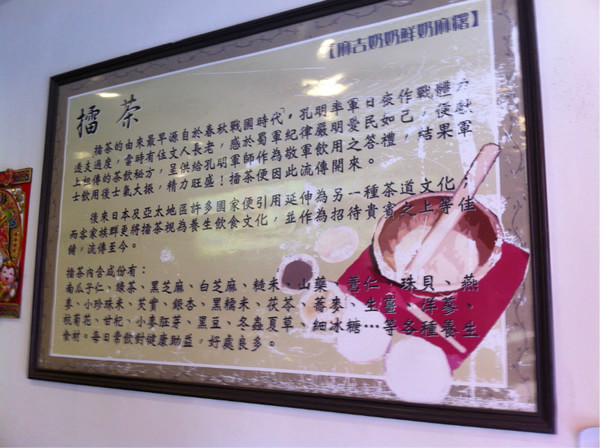 【麻吉奶奶鮮奶麻糬】
擂茶
擂茶的由來最早源自於春秋戰國時代，孔明率軍日夜作戰體力
透支過度，當時有位文人長老，感於蜀軍紀律嚴明愛民如己，便獻
上相傳的茶飲秘方，呈供給孔明軍師作為敬軍飲用之答禮，結果軍
士飲用後士氣大振，精力旺盛！擂茶便因此流傳開來。
後來日本及亞太地區許多國家便引用延伸為另一種茶道文化，
而客家族群更將擂茶視為養生飲食文化，並作為招待貴賓之上等佳
餚，流傳至今。
擂茶內含成份有：
南瓜子仁、綠茶、黑芝麻、白芝麻、糙米、山藥、薏仁、珠貝、燕
麥、小珍珠米、芡實、銀杏、黑糯米、茯苓、蕎麥、生薑、洋蔘、
杭菊花、甘杞、小麥胚芽、黑豆、冬蟲夏草、細冰糖…等各種養生
食材。每日常飲對健康助益，好處良多。